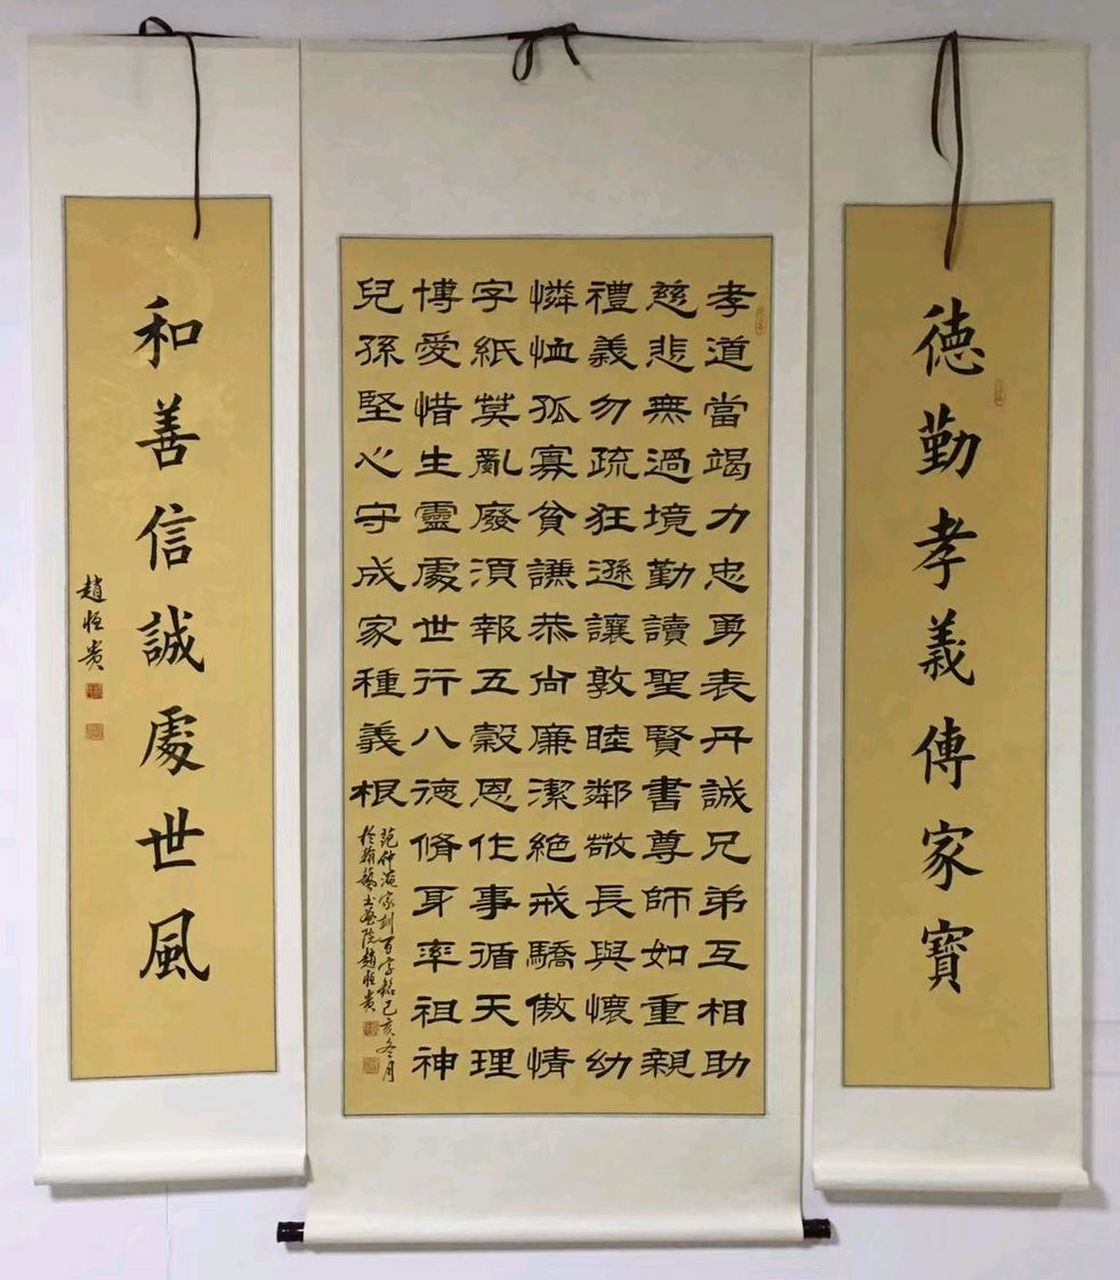 德勤孝義傳家寶
孝道當竭力忠勇表丹誠兄弟互相助
慈悲無過境勤讀聖賢書尊師如重親
禮義勿疏狂遜讓敦睦鄰敬長與懷幼
憐恤孤寡貧謙恭尚廉潔絕戒驕傲情
字紙莫亂廢須報五穀恩作事循天理
博愛惜生靈處世行八德脩身率祖神
兒孫堅心守成家種義根
范仲淹家訓百字銘己亥冬月
於翰藝書畫院趙恒貴
和善信誠處世風
趙恒貴